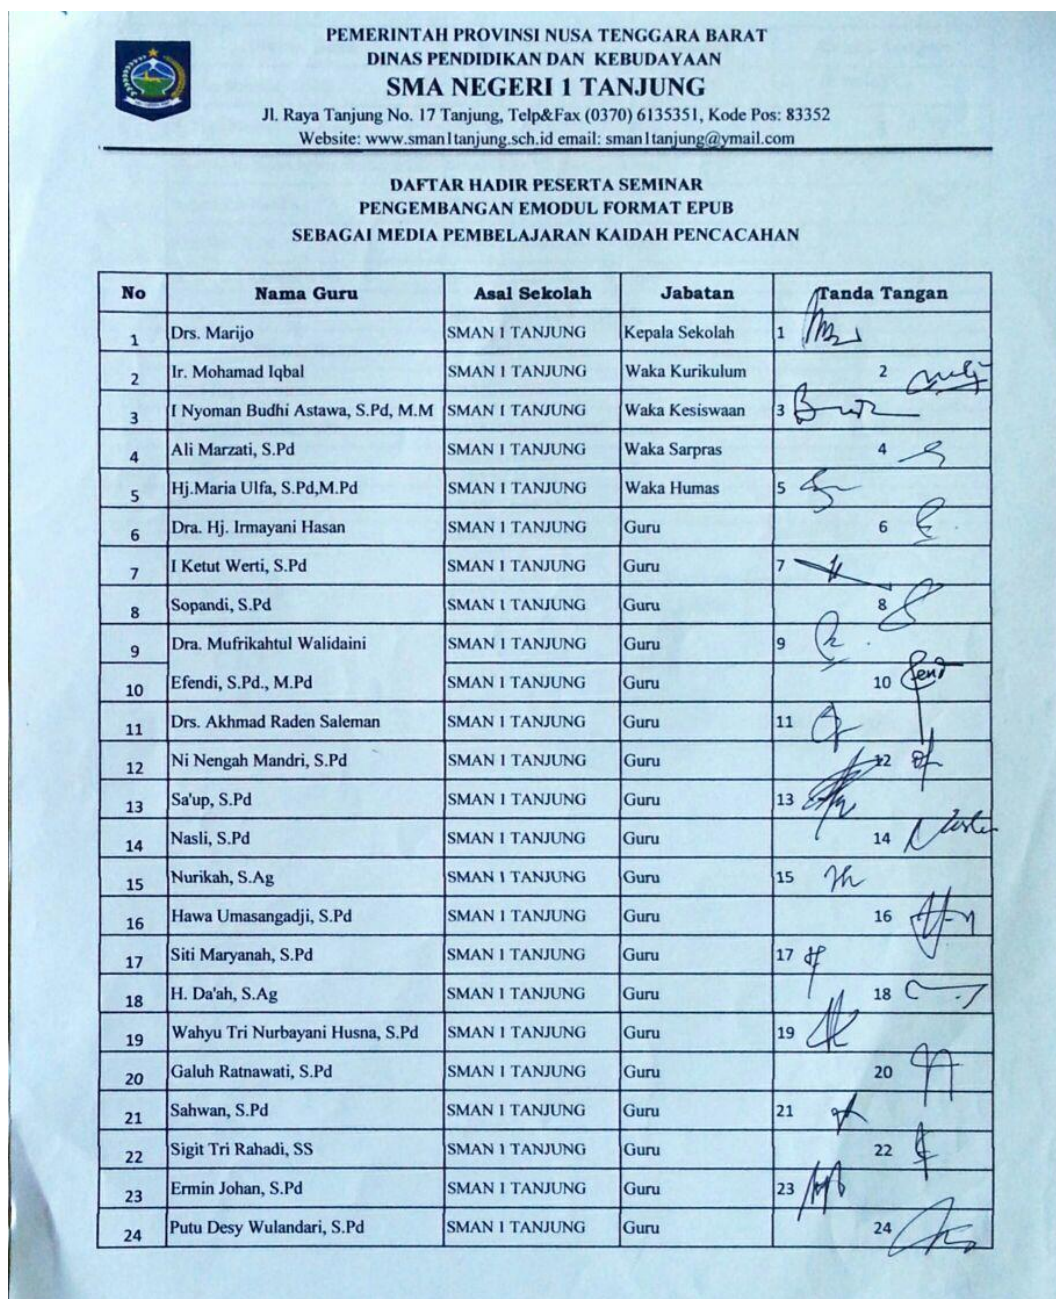 PEMERINTAH PROVINSI NUSA TENGGARA BARAT
DINAS PENDIDIKAN DAN KEBUDAYAAN
SMA NEGERI 1 TANJUNG
Jl. Raya Tanjung No. 17 Tanjung, Telp&Fax (0370) 6135351, Kode Pos: 83352
Website: www.sman1tanjung.sch.id email: sman1tanjung@ymail.com
DAFTAR HADIR PESERTA SEMINAR
PENGEMBANGAN EMODUL FORMAT EPUB
SEBAGAI MEDIA PEMBELAJARAN KAIDAH PENCACAHAN
No Nama Guru Asal Sekolah Jabatan Tanda Tangan
1 Drs. Marijo SMAN 1 TANJUNG Kepala Sekolah 1
2 Ir. Mohamad Iqbal SMAN 1 TANJUNG Waka Kurikulum 2
3 I Nyoman Budhi Astawa, S.Pd, M.M SMAN 1 TANJUNG Waka Kesiswaan 3
4 Ali Marzati, S.Pd SMAN 1 TANJUNG Waka Sarpras 4
5 Hj.Maria Ulfa, S.Pd,M.Pd SMAN 1 TANJUNG Waka Humas 5
6 Dra. Hj. Irmayani Hasan SMAN 1 TANJUNG Guru 6
7 I Ketut Werti, S.Pd SMAN 1 TANJUNG Guru 7
8 Sopandi, S.Pd SMAN 1 TANJUNG Guru 8
9 Dra. Mufrikahtul Walidaini SMAN 1 TANJUNG Guru 9
10 Efendi, S.Pd., M.Pd SMAN 1 TANJUNG Guru 10
11 Drs. Akhmad Raden Saleman SMAN 1 TANJUNG Guru 11
12 Ni Nengah Mandri, S.Pd SMAN 1 TANJUNG Guru 12
13 Sa'up, S.Pd SMAN 1 TANJUNG Guru 13
14 Nasli, S.Pd SMAN 1 TANJUNG Guru 14
15 Nurikah, S.Ag SMAN 1 TANJUNG Guru 15
16 Hawa Umasangadji, S.Pd SMAN 1 TANJUNG Guru 16
17 Siti Maryanah, S.Pd SMAN 1 TANJUNG Guru 17
18 H. Da'ah, S.Ag SMAN 1 TANJUNG Guru 18
19 Wahyu Tri Nurbayani Husna, S.Pd SMAN 1 TANJUNG Guru 19
20 Galuh Ratnawati, S.Pd SMAN 1 TANJUNG Guru 20
21 Sahwan, S.Pd SMAN 1 TANJUNG Guru 21
22 Sigit Tri Rahadi, SS SMAN 1 TANJUNG Guru 22
23 Ermin Johan, S.Pd SMAN 1 TANJUNG Guru 23
24 Putu Desy Wulandari, S.Pd SMAN 1 TANJUNG Guru 24